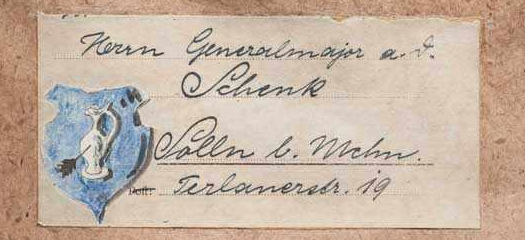 Herrn Generalmajor a. D.
Schenk
Solln b. Mchn.
Post:
Terlanerstr. 19